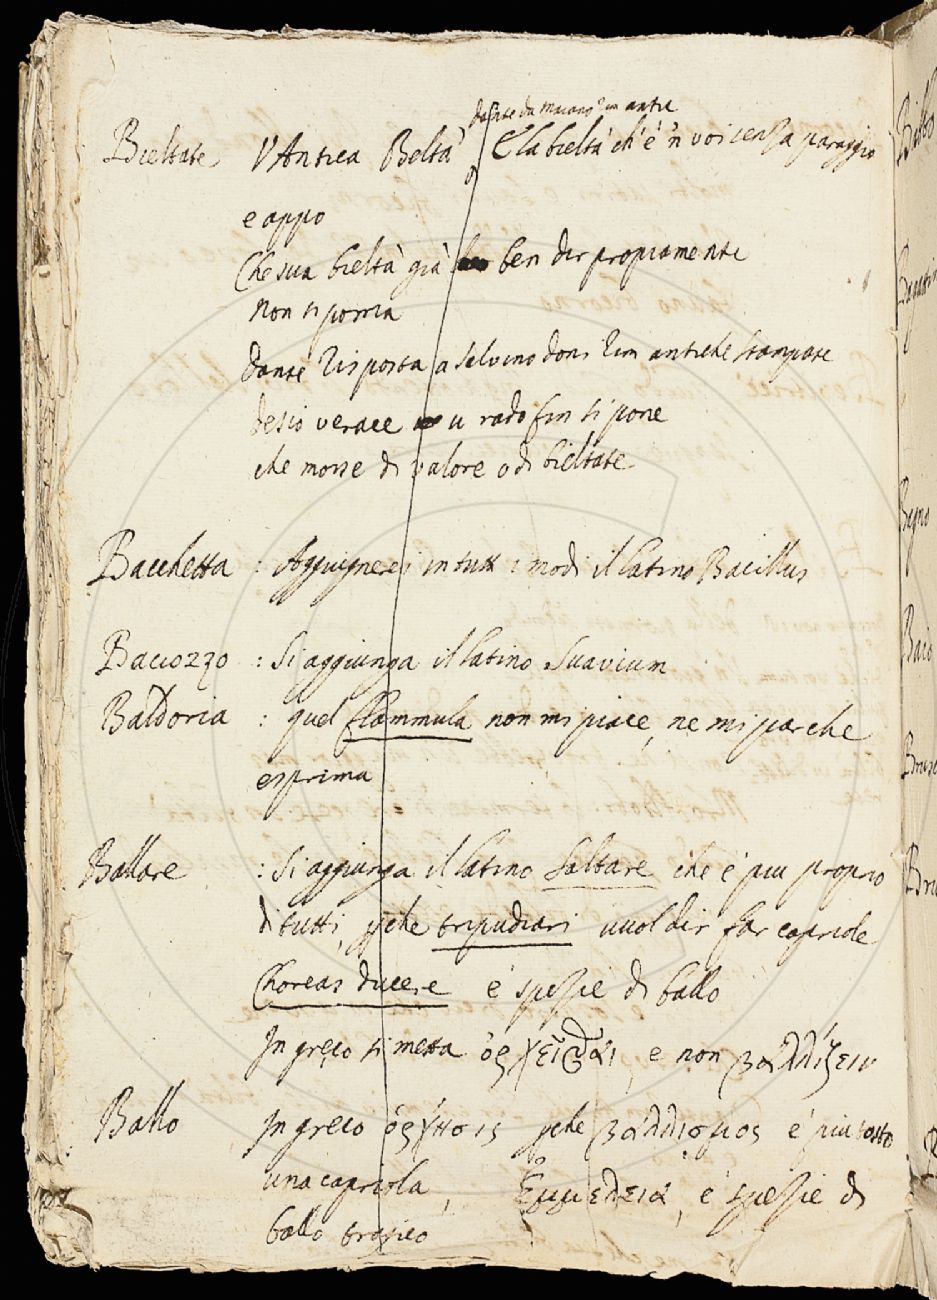 Dante da Maiano rim antic
Bieltate V Antica Beltà o E la bieltà ch'è 'n voi senza paraggio
e appo
Che sua bieltà già ben dir propiamente
Non si porria
Dante Risposta a Salvino Doni Rim antiche stampate
Desio verace u rado fin si pone
che mosse di valore o di bieltate
Bacchetta : Aggiugnerei in tutti i modi il latino Bacillus
Baciozzo : Si aggiunga il latino Suavium
Baldoria : quel flammula non mi piace, ne mi par che
esprima
Ballare : Si aggiunga il latino Saltare che è piu proprio
di tutti, pche tripudiari vuol dir far capriole
Choreas ducere è spezie di ballo
In greco si metta ὀρχεῖσθαι, e non βαλλίζειν
Ballo In greco ὄρχησις pche βαλλισμος è piu tosto
una capriola, Ἐμμελεια, è spezie di
ballo tragico